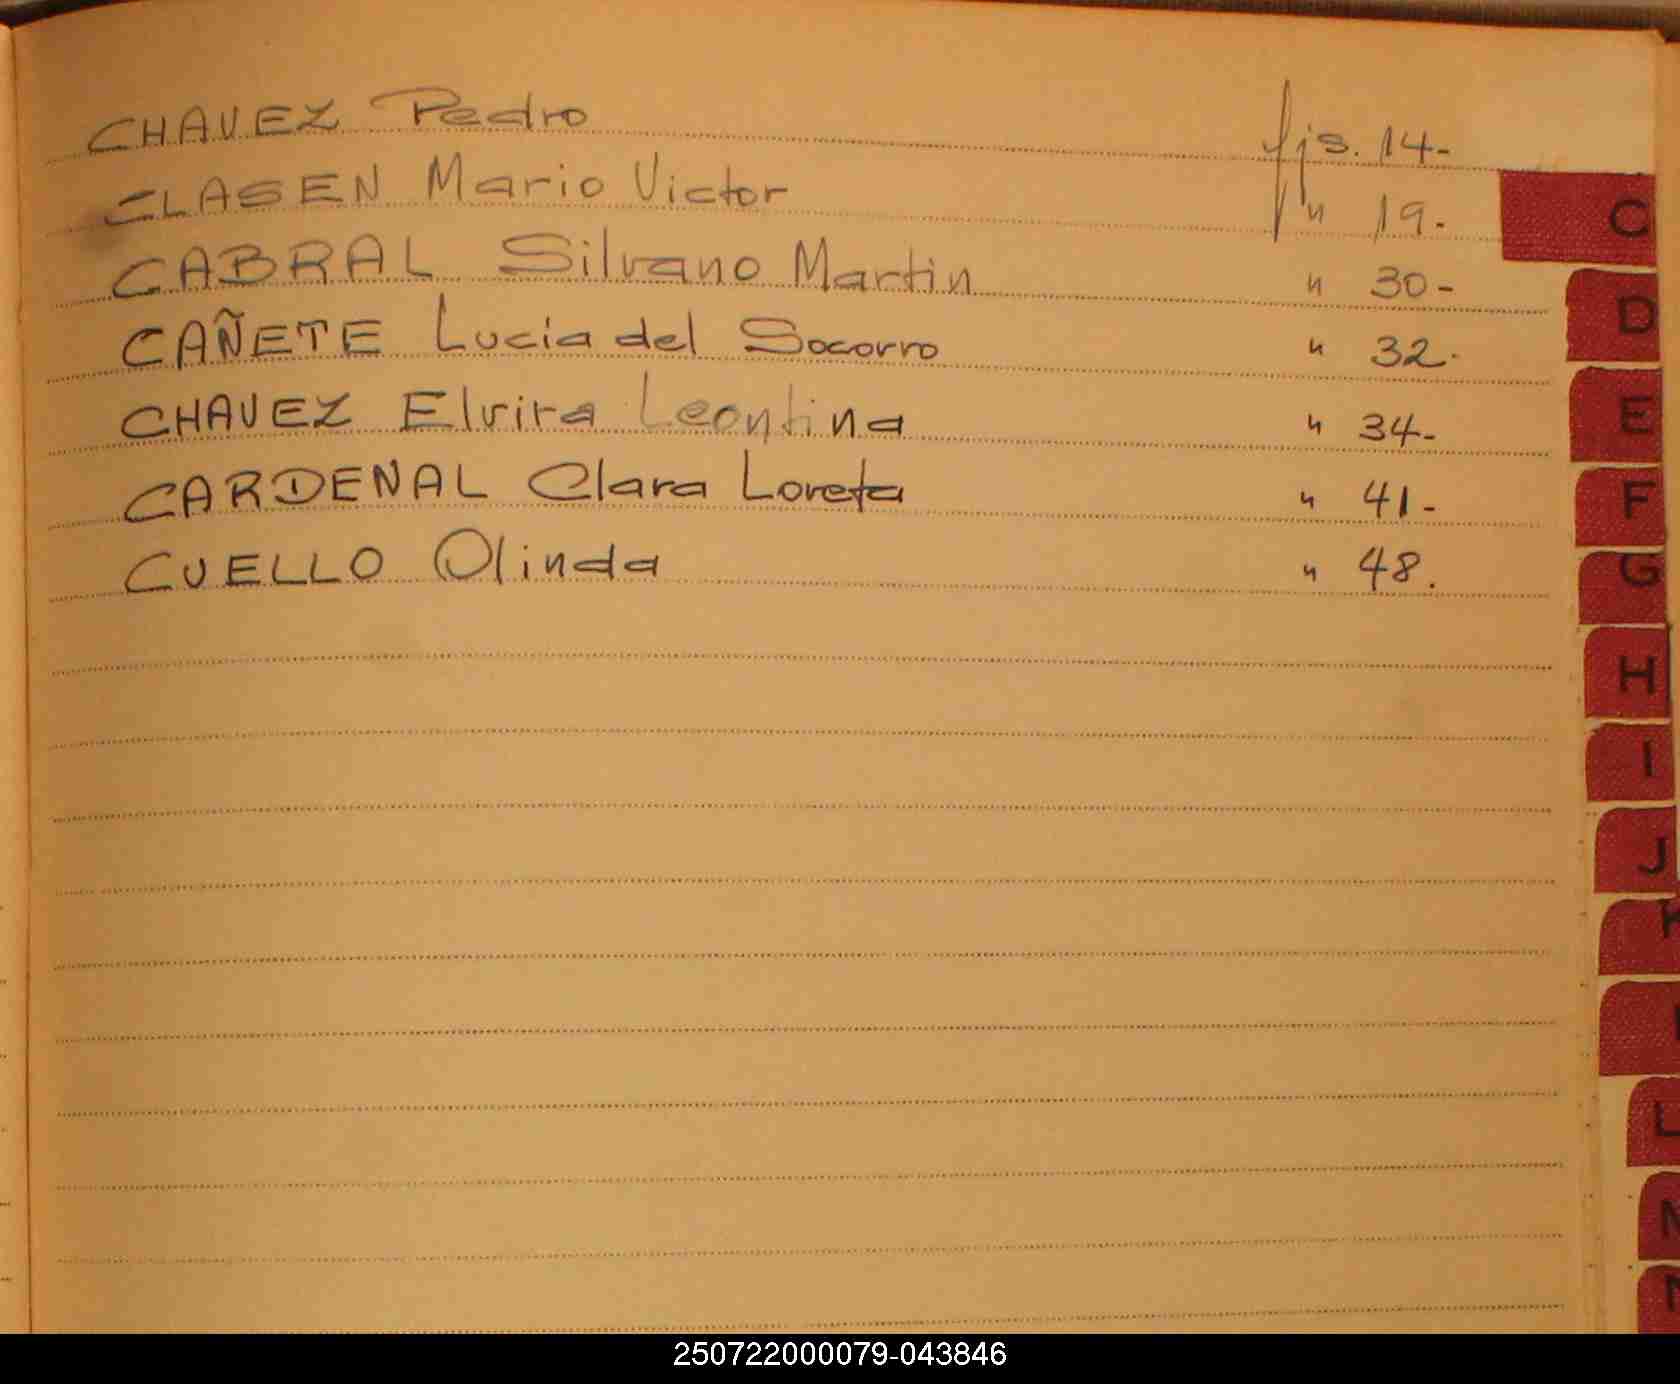 CHAVEZ Pedro fjs. 14-
CLASEN Mario Victor " 19-
CABRAL Silvano Martin " 30-
CAÑETE Lucia del Socorro " 32-
CHAVEZ Elvira Leontina " 34-
CARDENAL Clara Loreta " 41-
CUELLO Olinda " 48.
C
D
E
F
G
H
I
J
K
L
N
250722000079-043846